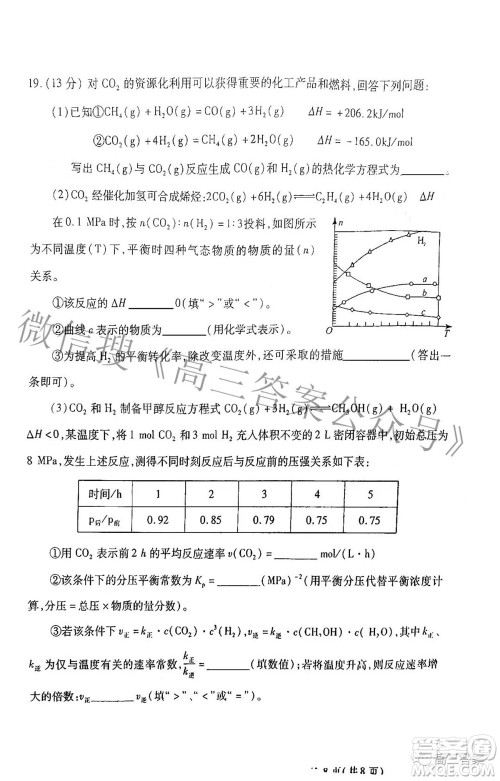 19.(13分) 对CO₂的资源化利用可以获得重要的化工产品和燃料,回答下列问题:
(1)已知①CH₄(g)+H₂O(g)=CO(g)+3H₂(g) ΔH=+206.2kJ/mol
②CO₂(g)+4H₂(g)=CH₄(g)+2H₂O(g) ΔH=-165.0kJ/mol
写出CH₄(g)与CO₂反应生成CO和H₂(g)的热化学方程式为______。
(2)CO₂经催化加氢可合成烯烃:2CO₂(g)+6H₂(g)⇌C₂H₄(g)+4H₂O(g) ΔH
在0.1 MPa时,按n(CO₂):n(H₂)=1:3投料,如图所示
为不同温度(T)下,平衡时四种气态物质的物质的量(n)
关系。
n
H₂
a
b
c
T
①该反应的ΔH______0(填“>”或“<”)。
②曲线c表示的物质为______(用化学式表示)。
③为提高H₂的平衡转化率,除改变温度外,还可采用的措施______(答出一
条即可)。
(3)CO₂和H₂制备甲醇反应方程式CO₂(g)+3H₂(g)⇌CH₃OH(g)+H₂O(g)
ΔH<0,某温度下,将1 mol CO₂和3 mol H₂充入体积不变的2 L密闭容器中,初始总压为
8 MPa,发生上述反应,测得不同时刻反应后与反应前的压强关系如下表:
时间/h 1 2 3 4 5
p后/p前 0.92 0.85 0.79 0.75 0.75
①用CO₂表示前2 h的平均反应速率v(CO₂)=______mol/(L·h)。
②该条件下的分压平衡常数为Kₚ=______(MPa)⁻²(用平衡分压代替平衡浓度计
算,分压=总压×物质的量分数)。
③若该条件下v正=k正·c(CO₂)·c³(H₂),v逆=k逆·c(CH₃OH)·c(H₂O),其中k正、
k逆为仅与温度有关的速率常数,k正/k逆=______(填数值);若将温度升高,反应速率增
大的倍数:v正______v逆(填“>”、“<”或“=”)。
微信搜《高三答案公众号》
(共8页)
高三答案